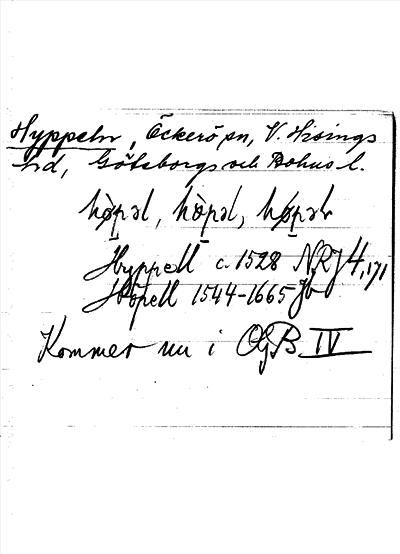 Hyppeln, Öckerö sn, V. Hisings
hd, Göteborgs och Bohus l.
hø̀pəl, hö̀pəl, hø̀pəln
Hyppell c. 1528 NRJ 4, 171
Höpell 1544-1665 Jb
Kommer nu i OGB IV